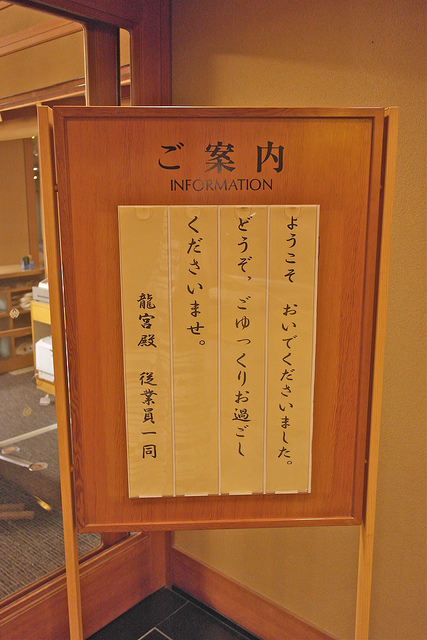 ご案内
INFORMATION
ようこそ おいでくださいました。
どうぞ、ごゆっくりお過ごし
くださいませ。
龍宮殿 従業員一同